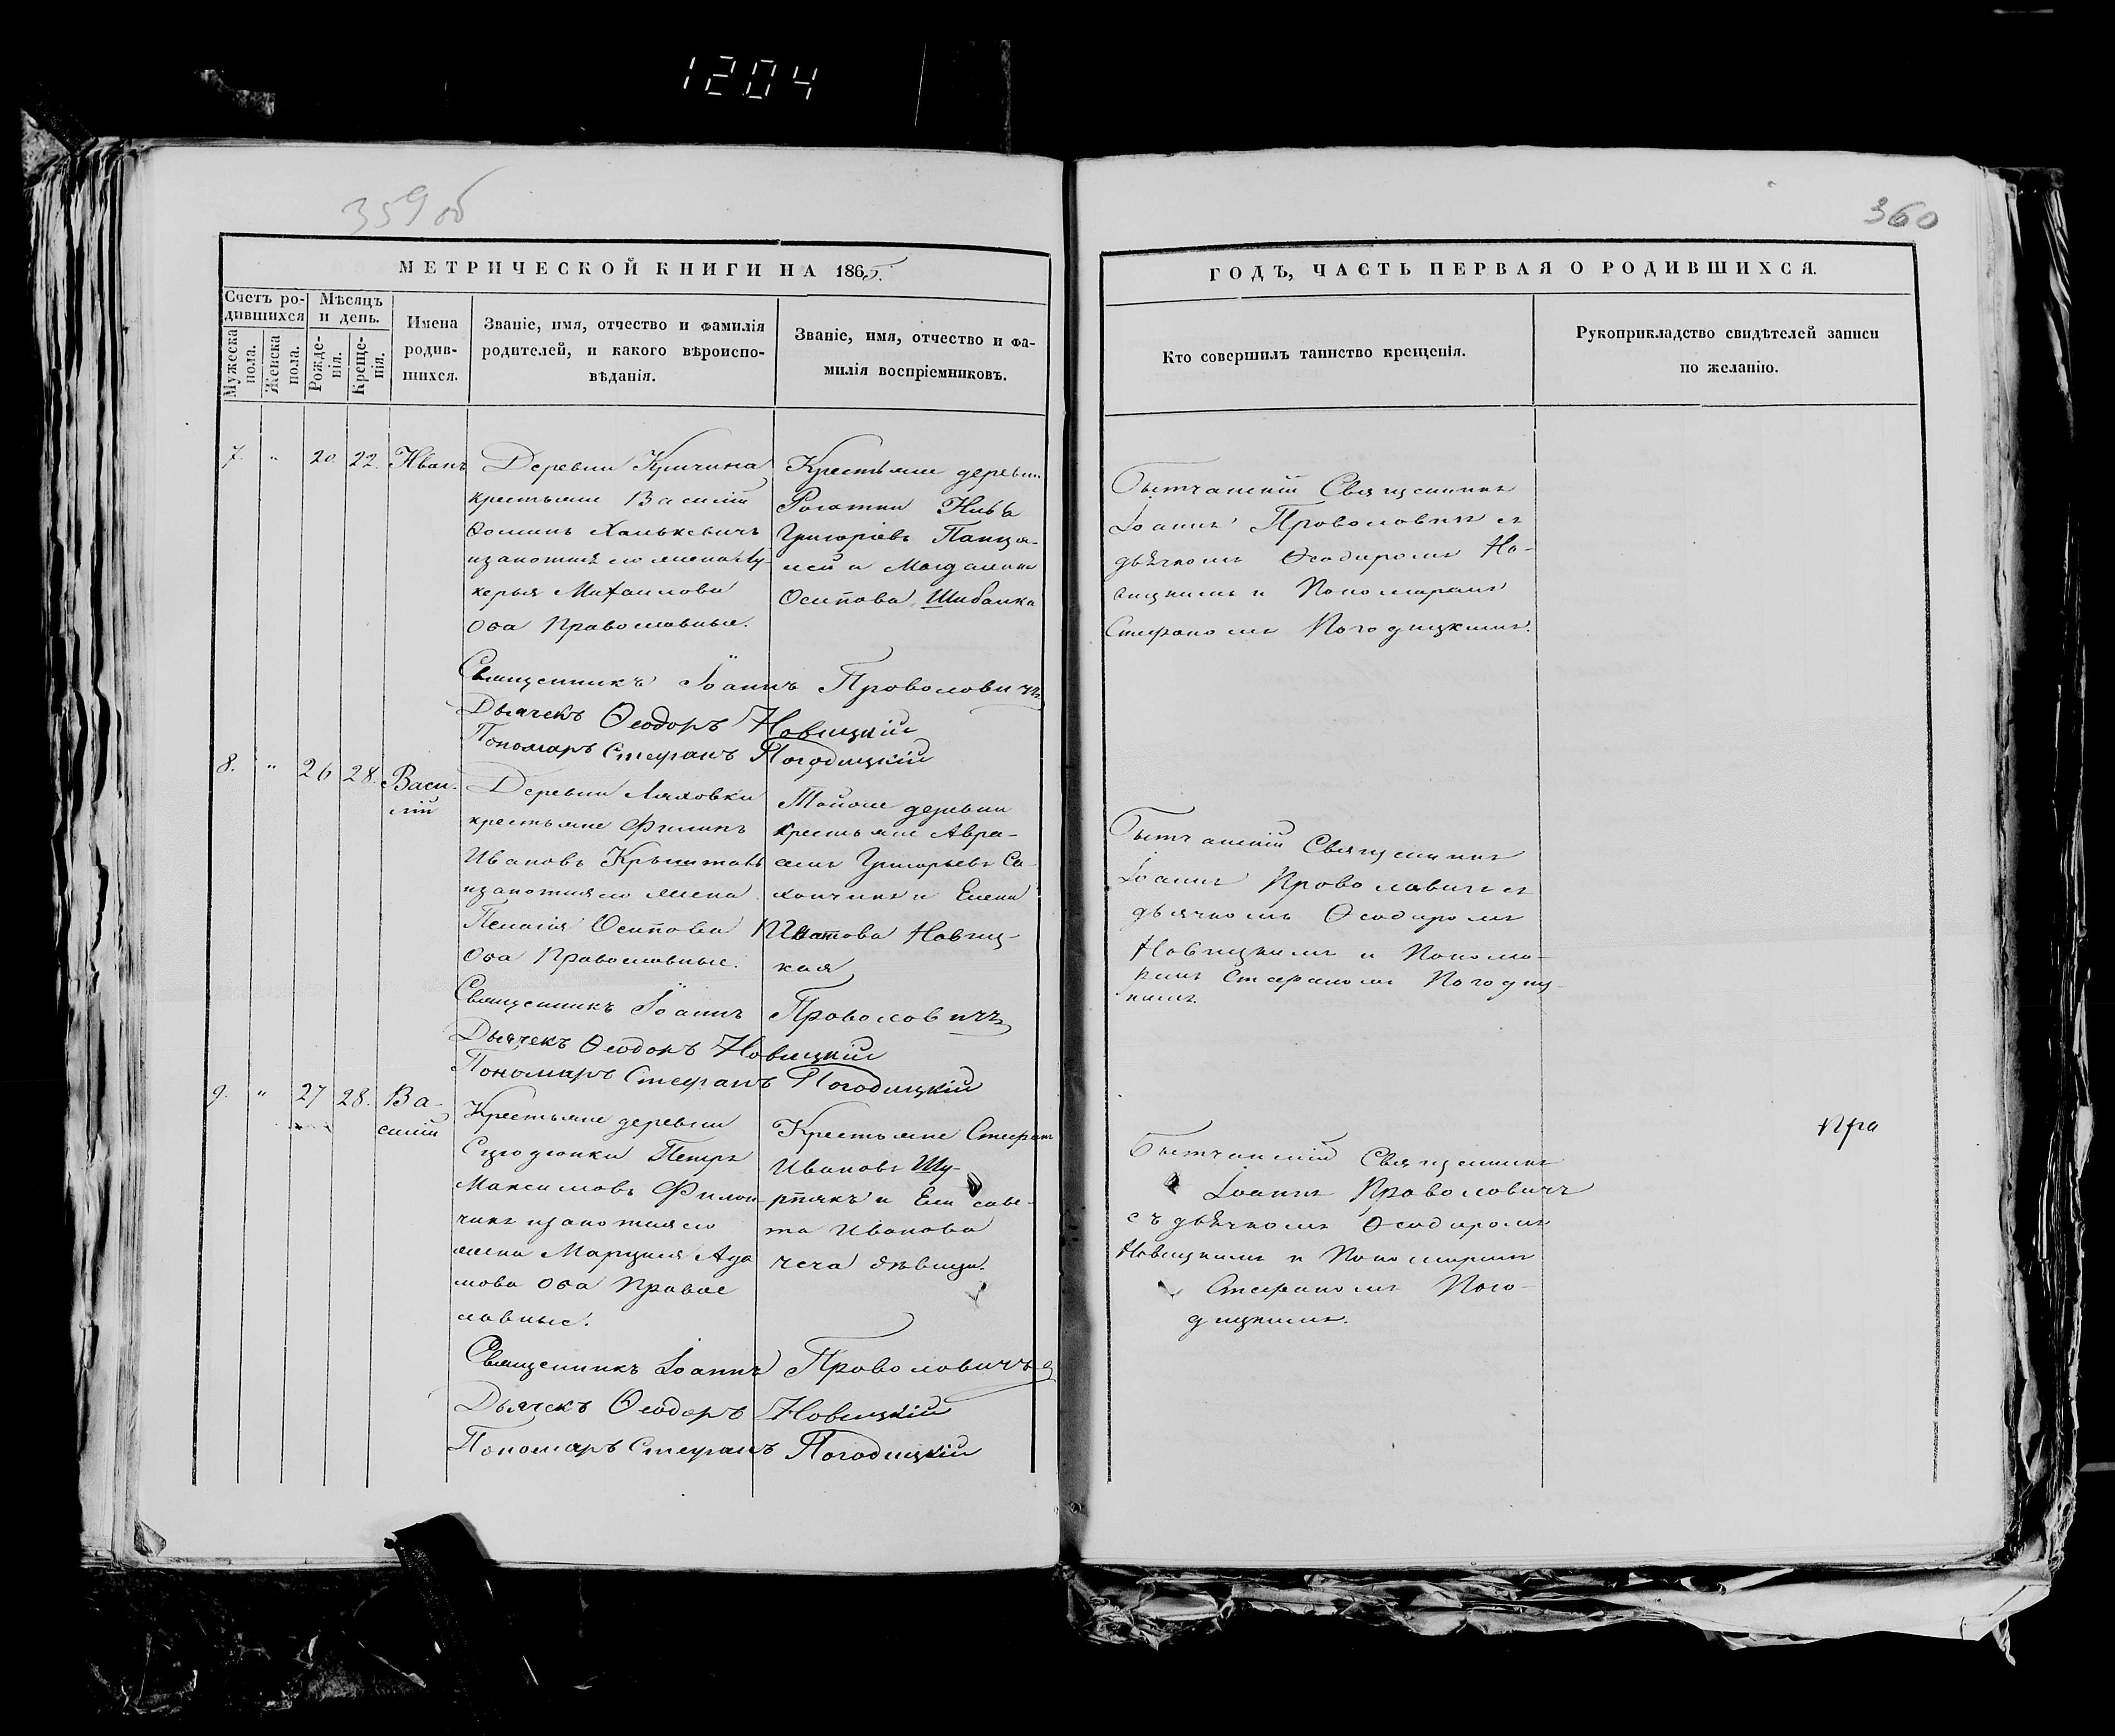 1204
359 об
360
МЕТРИЧЕСКОЙ КНИГИ НА 1865.
ГОДЪ, ЧАСТЬ ПЕРВАЯ О РОДИВШИХСЯ.
Счетъ ро-
дившихся
Мужеска
пола.
Женска
пола.
Мѣсяцъ
и день.
Рожде-
нія.
Креще-
нія.
Имена
родив-
шихся.
Званіе, имя, отчество и фамилія
родителей, и какого вѣроиспо-
вѣданія.
Званіе, имя, отчество и фа-
милія воспріемниковъ.
Кто совершилъ таинство крещенія.
Рукоприкладство свидѣтелей записи
по желанію.
7. " 20 22. Иванъ
Деревни Кричина
крестьяне Василій
Фоминъ Ханькевичъ
изаконная его жена Лу-
керья Михаилова
оба Православные.
Крестьяне деревни
Григоріевъ
и Магдалина
Осипова Шибалка
Священникъ
Іоаннъ Проволовичъ съ
дьячкомъ Ѳеодоромъ Но-
вицкимъ и Пономаремъ
Стефаномъ Погодицкимъ.
Священникъ Іоаннъ Проволовичъ
Дьячекъ Ѳеодоръ Новицкій
Пономарь Стефанъ Погодицкій
8. " 26 28. Васи-
лій
Деревни Ляховки
крестьяне Филипъ
Ивановъ
изаконная его жена
Пелагія Осипова
оба Православные.
Тойже деревни
крестьяне Авра-
амъ Григорьевъ Са-
и Елена
Новиц-
кая
Священникъ
Іоаннъ Проволовичъ съ
дьячкомъ Ѳеодоромъ
Новицкимъ и Понома-
ремъ Стефаномъ Погодиц-
кимъ.
Священникъ Іоаннъ Проволовичъ
Дьячекъ Ѳеодоръ Новицкій
Пономарь Стефанъ Погодицкій
9. " 27 28. Ва-
силій
Крестьяне деревни
Петръ
Максимовъ Филон-
чикъ изаконная его
жена Марцеля Ада
мова оба Правос
лавные.
Крестьяне Стефанъ
Ивановъ Шу-
рпякъ и Елисаве-
та Иванова
дѣвица.
Священникъ
Іоаннъ Проволовичъ
съ дьячкомъ Ѳеодоромъ
Новицкимъ и Пономаремъ
Стефаномъ Пого-
дицкимъ.
Пра
Священникъ Іоаннъ Проволовичъ
Дьячекъ Ѳеодоръ Новицкій
Пономарь Стефанъ Погодицкій